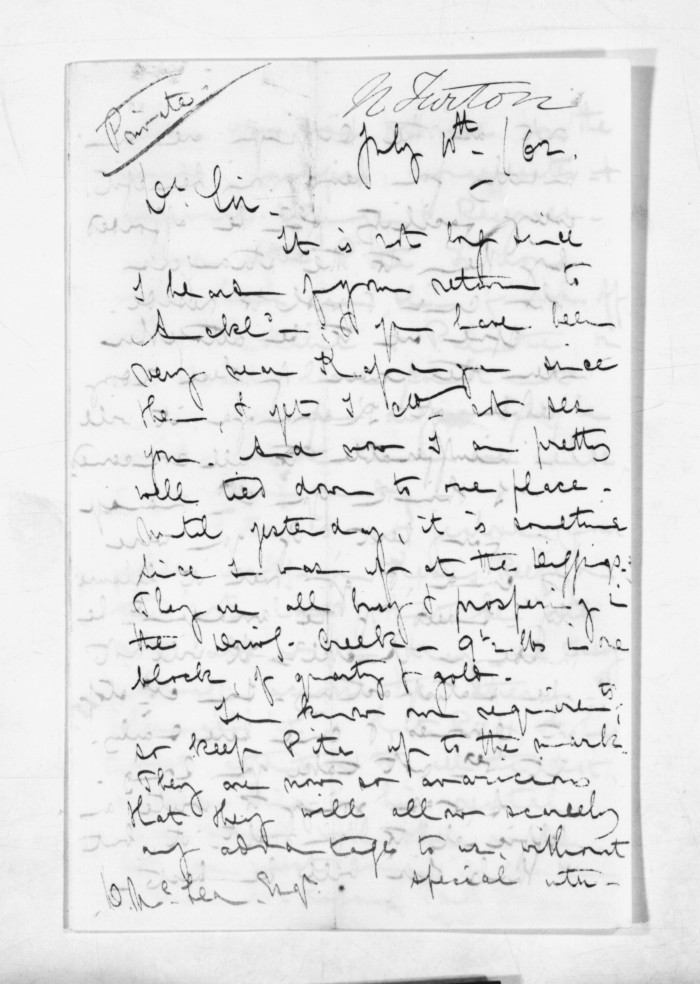 Private
N Turton
July 10th /62.
Dr. Sir.
It is not long since
I heard of your return to
Auckld. & you have been
very near since
then, & yet I cd. not see
you. And now I am pretty
well tied down to one place.
Until yesterday, it is sometime
since I was up at the Diggings.
They are all busy & prospering in
the Driving Creek - 9 lbs in one
block, of quartz & gold.
You know our requirements,
so keep Pita up to the mark.
They are now so avaricious
that they will allow scarcely
any advantage to us, without
special
D. McLean Esqr